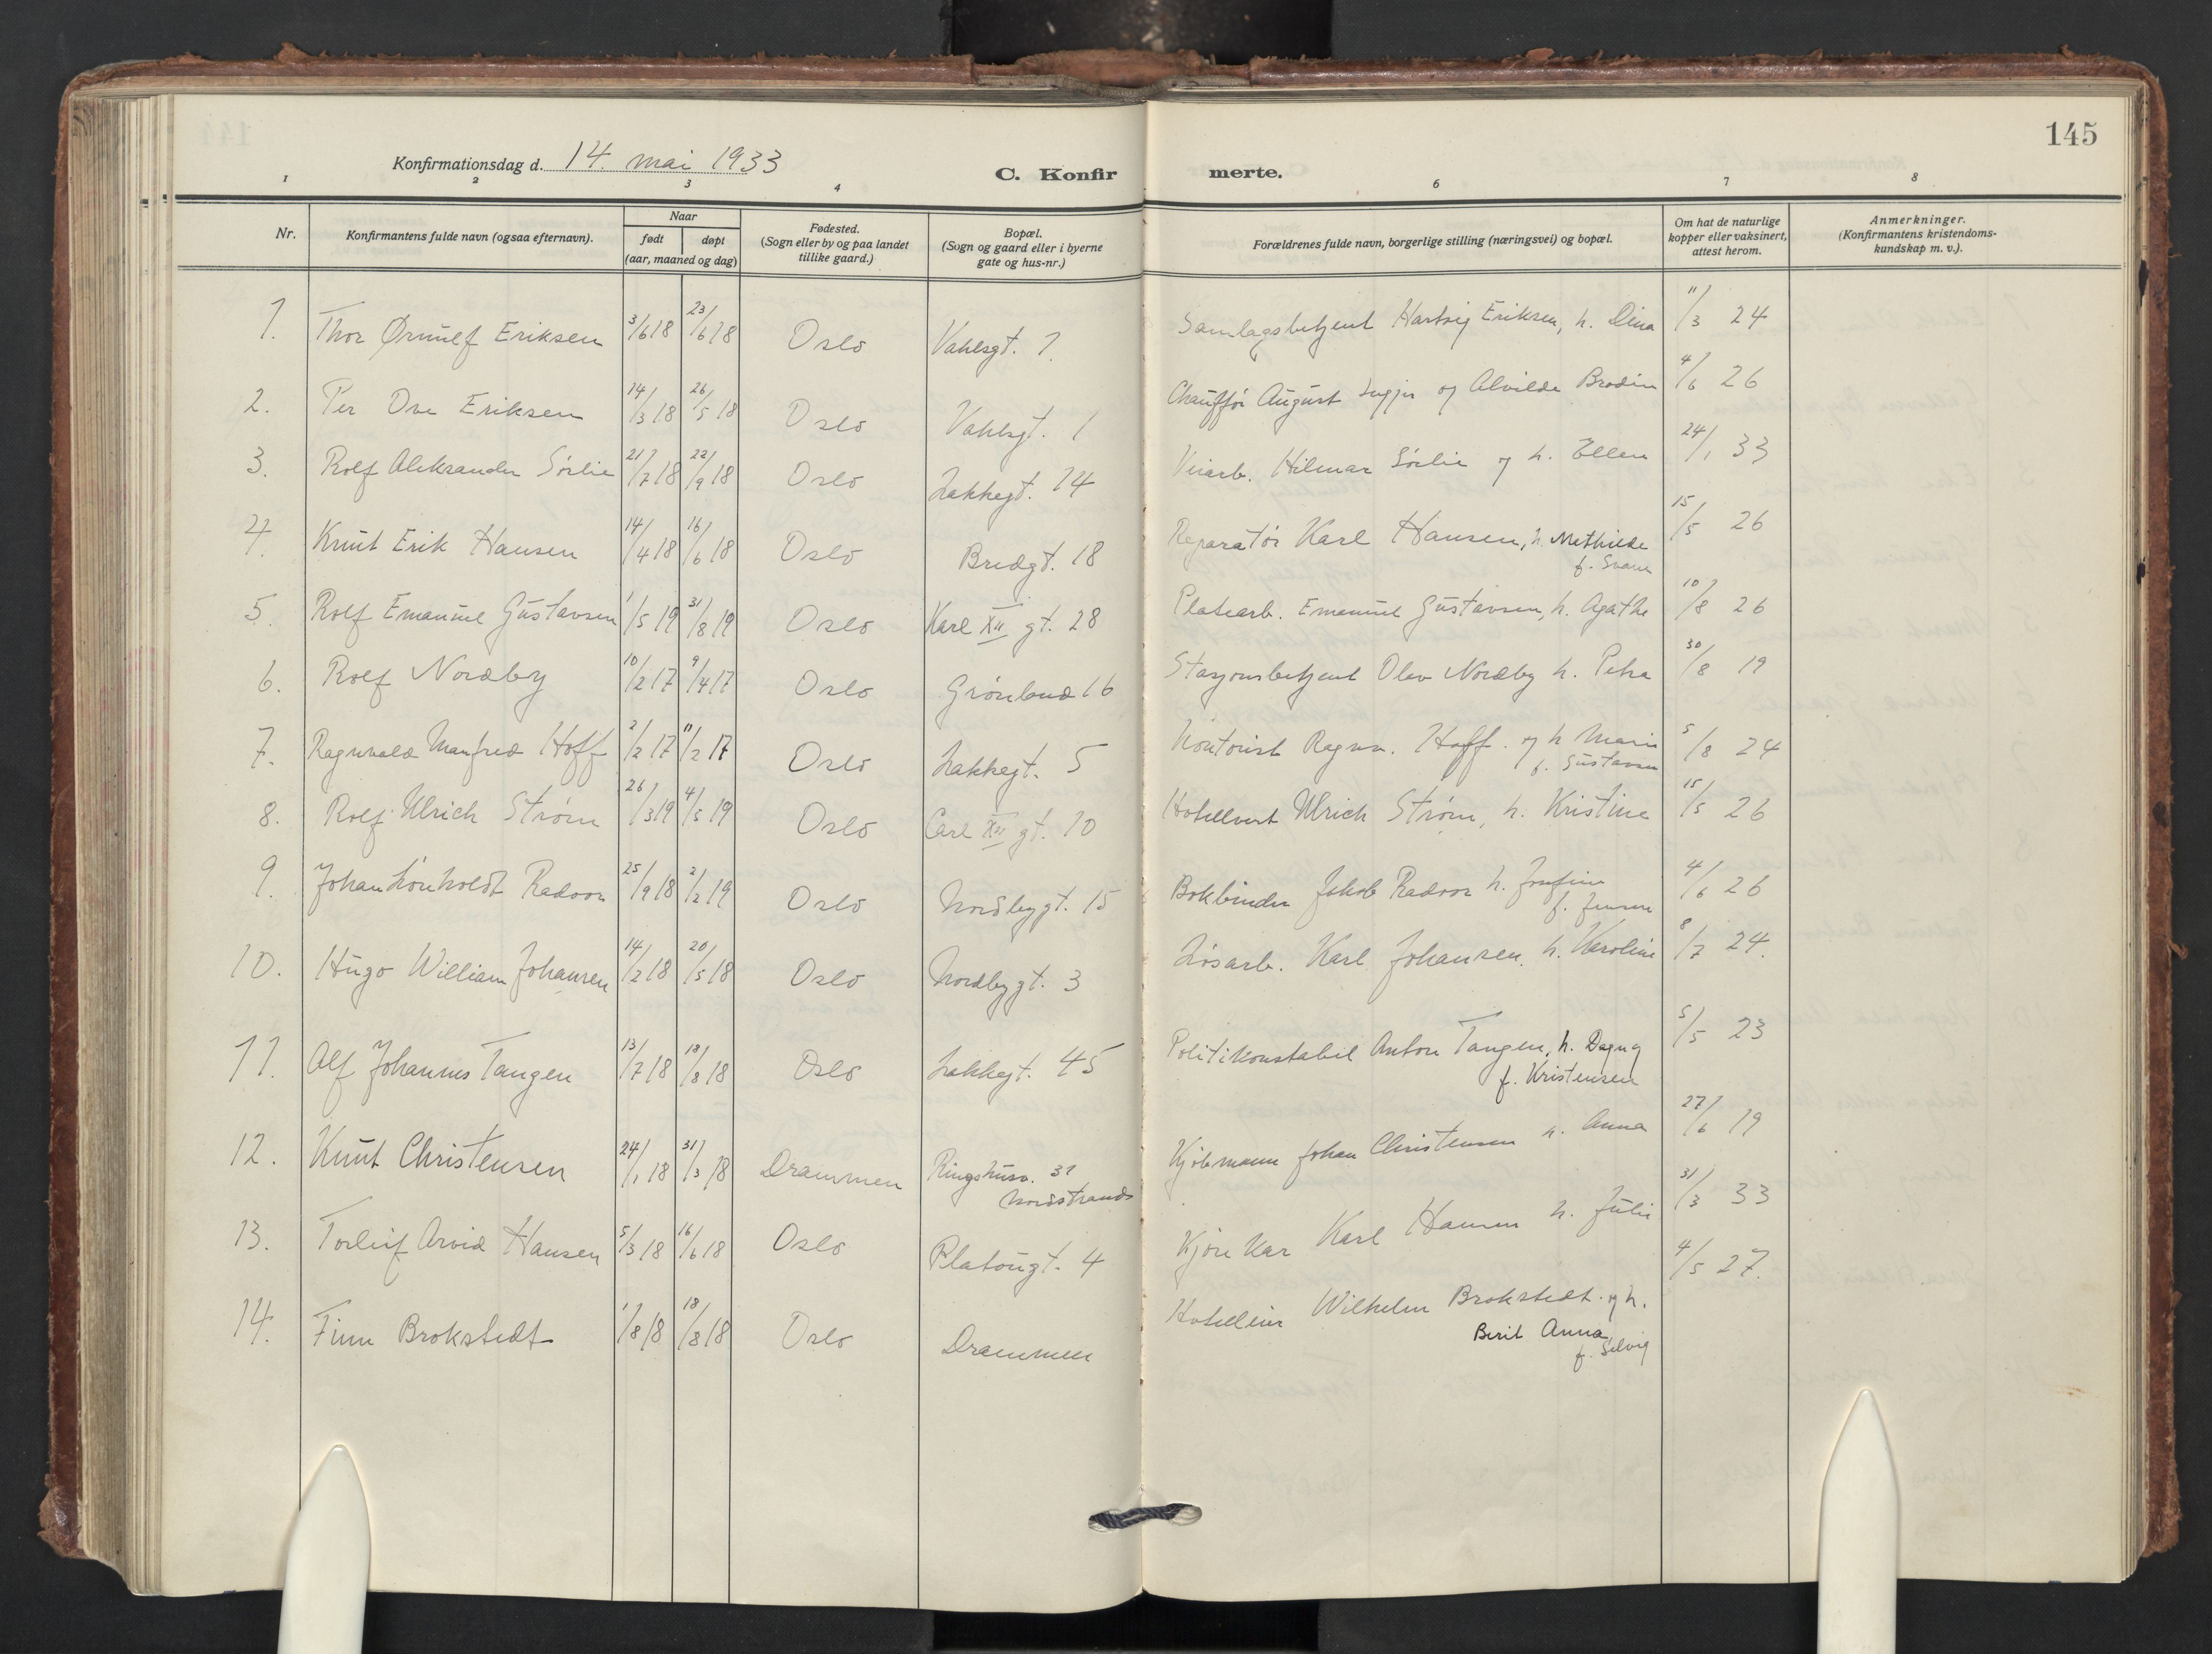 145
Konfirmationsdag d. 14. mai 1933
C. Konfirmerte.
1 2 3 4 6 7 8
Nr. Konfirmantens fulde navn (ogsaa efternavn). Naar født døpt (aar, maaned og dag) Fødested. (Sogn eller by og paa landet tillike gaard.) Bopæl. (Sogn og gaard eller i byerne gate og hus-nr.) Forældrenes fulde navn, borgerlige stilling (næringsvei) og bopæl. Om hat de naturlige kopper eller vaksinert, attest herom. Anmerkninger. (Konfirmantens kristendoms-kundskap m. v.).
1. Thor Ørnulf Eriksen 3/6 18 23/6 18 Oslo Vahlsgt. 1. Samlagsbetjent Hartvig Eriksen, h. Dina 11/3 24
2. Per Ove Eriksen 14/3 18 26/5 18 Oslo Vahlsgt. 1 Chauffør August og Alvilde Brodin 4/6 26
3. Rolf Aleksander Sörlie 21/7 18 22/9 18 Oslo Lakkegt. 14 Veiarb. Hilmar Sörlie og h. Ellen 24/1 33
4. Knut Erik Hansen 14/4 18 16/6 18 Oslo Bredgt. 18 Reparatör Karl Hansen, h. Mathilde
f. Svane 15/5 26
5. Rolf Emanuel Gustavsen 1/5 19 31/8 19 Oslo Karl XII gt. 28 Platearb. Emanuel Gustavsen, h. Agathe 10/8 26
6. Rolf Nordby 10/2 17 9/4 17 Oslo Grönland 16 Stasjonsbetjent Olav Nordby h. Petra 30/8 19
7. Ragnvald Manfred Hoff 2/2 17 11/2 17 Oslo Lakkegt. 5 Kontorist Ragnv. Hoff. og h Marie
f. Gustavsen 5/8 24
8. Rolf Ulrich Ström 26/3 19 4/5 19 Oslo Carl XII gt. 10 Hotellvert Ulrich Ström, h. Kristine 15/5 26
9. Johan Lönholdt Radoor 25/9 18 2/2 19 Oslo Nordbygt. 15 Bokbinder Jakob Radoor h. Josefine
f. Jensen 4/6 26
10. Hugo William Johansen 14/2 18 20/5 18 Oslo Nordbygt. 3 Lösarb. Karl Johansen, h. Karoline 8/7 24.
11. Alf Johannes Tangen 13/7 18 18/8 18 Oslo Lakkegt. 45 Politikonstabel Anton Tangen, h. Dagny
f. Kristensen 5/5 23
12. Knut Christensen 24/1 18 31/3 18 Drammen Ringshusv. 31
Nordstrand Kjöbmann Johan Christensen h. Anna 27/6 19
13. Torleif Arvid Hansen 5/3 18 16/6 18 Oslo Platougt. 4 Kjörekar Karl Hansen h. Julie 31/3 33
14. Finn Brokstedt 1/8 18 18/8 18 Oslo Drammen Hotelleier Wilhelm Brokstedt. og h.
Berit Anna,
f. Selvig 4/5 27.